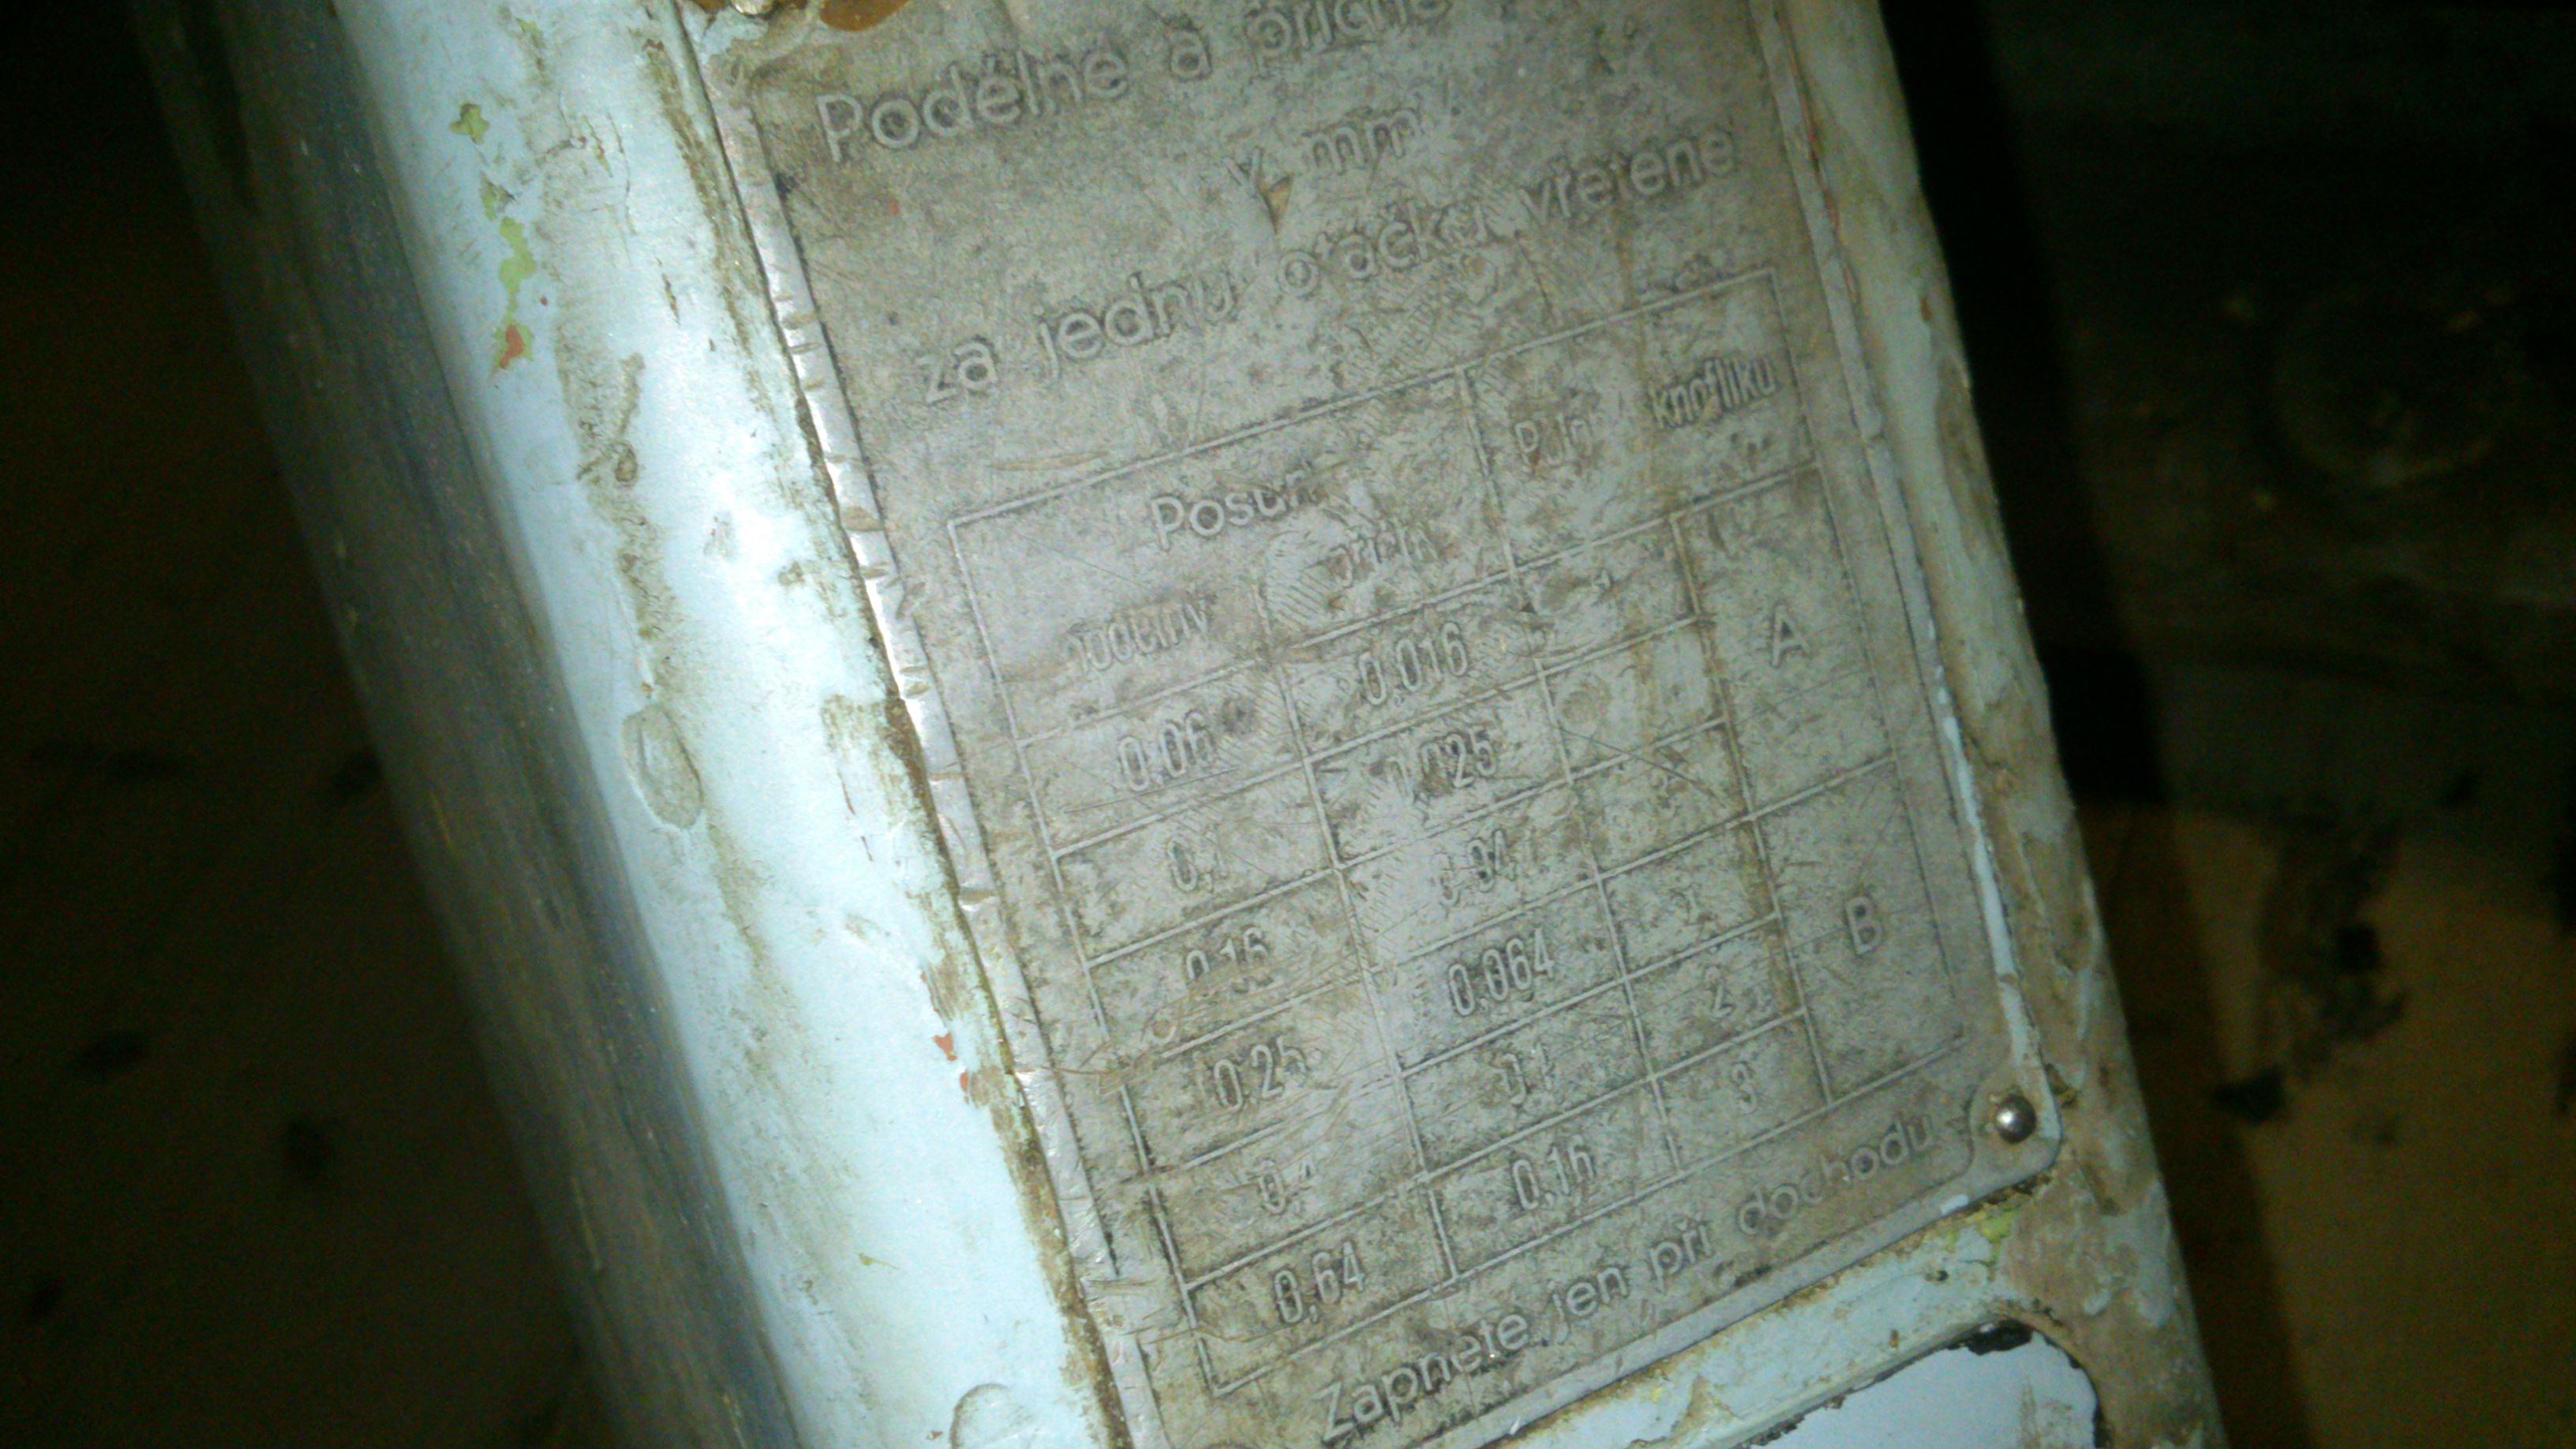 Podélné a příčné
v mm
za jednu otáčku vřetene
Posuv
knoflíku
podélný příčn
0,06 0,016
A
0,1 0,025
0,16 0,04
0,25 0,064 1
B
0,4 0,1 2
0,64 0,16 3
Zapněte jen při dochodu